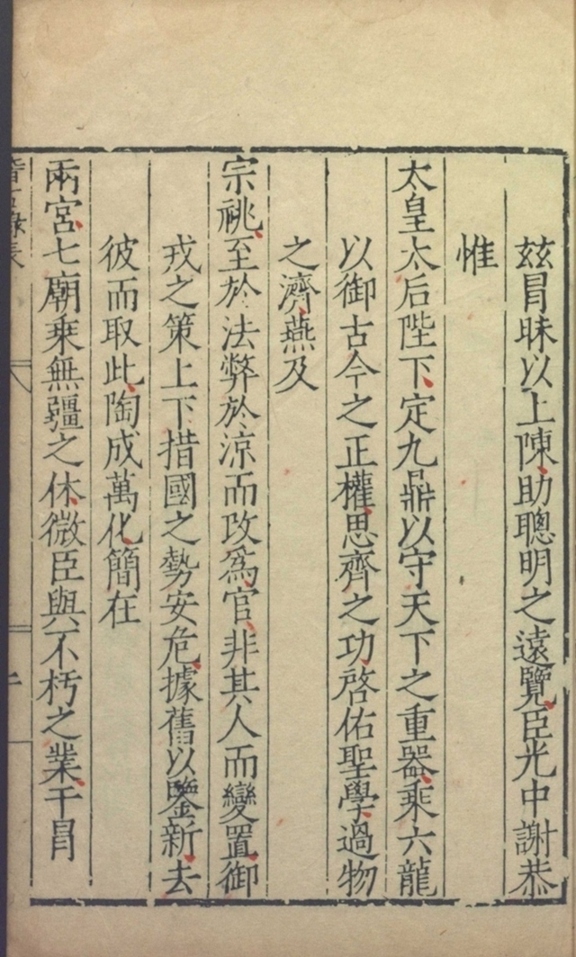 茲冒昧以上陳助聰明之遠覽臣光中謝恭
惟
太皇太后陛下定九鼎以守天下之重器乘六龍
以御古今之正權思齊之功啓佑聖學過物
之濟燕及
宗祧至於法弊於涼而改爲官非其人而變置御
戎之策上下措國之勢安危據舊以鑒新去
彼而取此陶成萬化簡在
兩宮七廟乘無疆之休微臣與不朽之業干冒